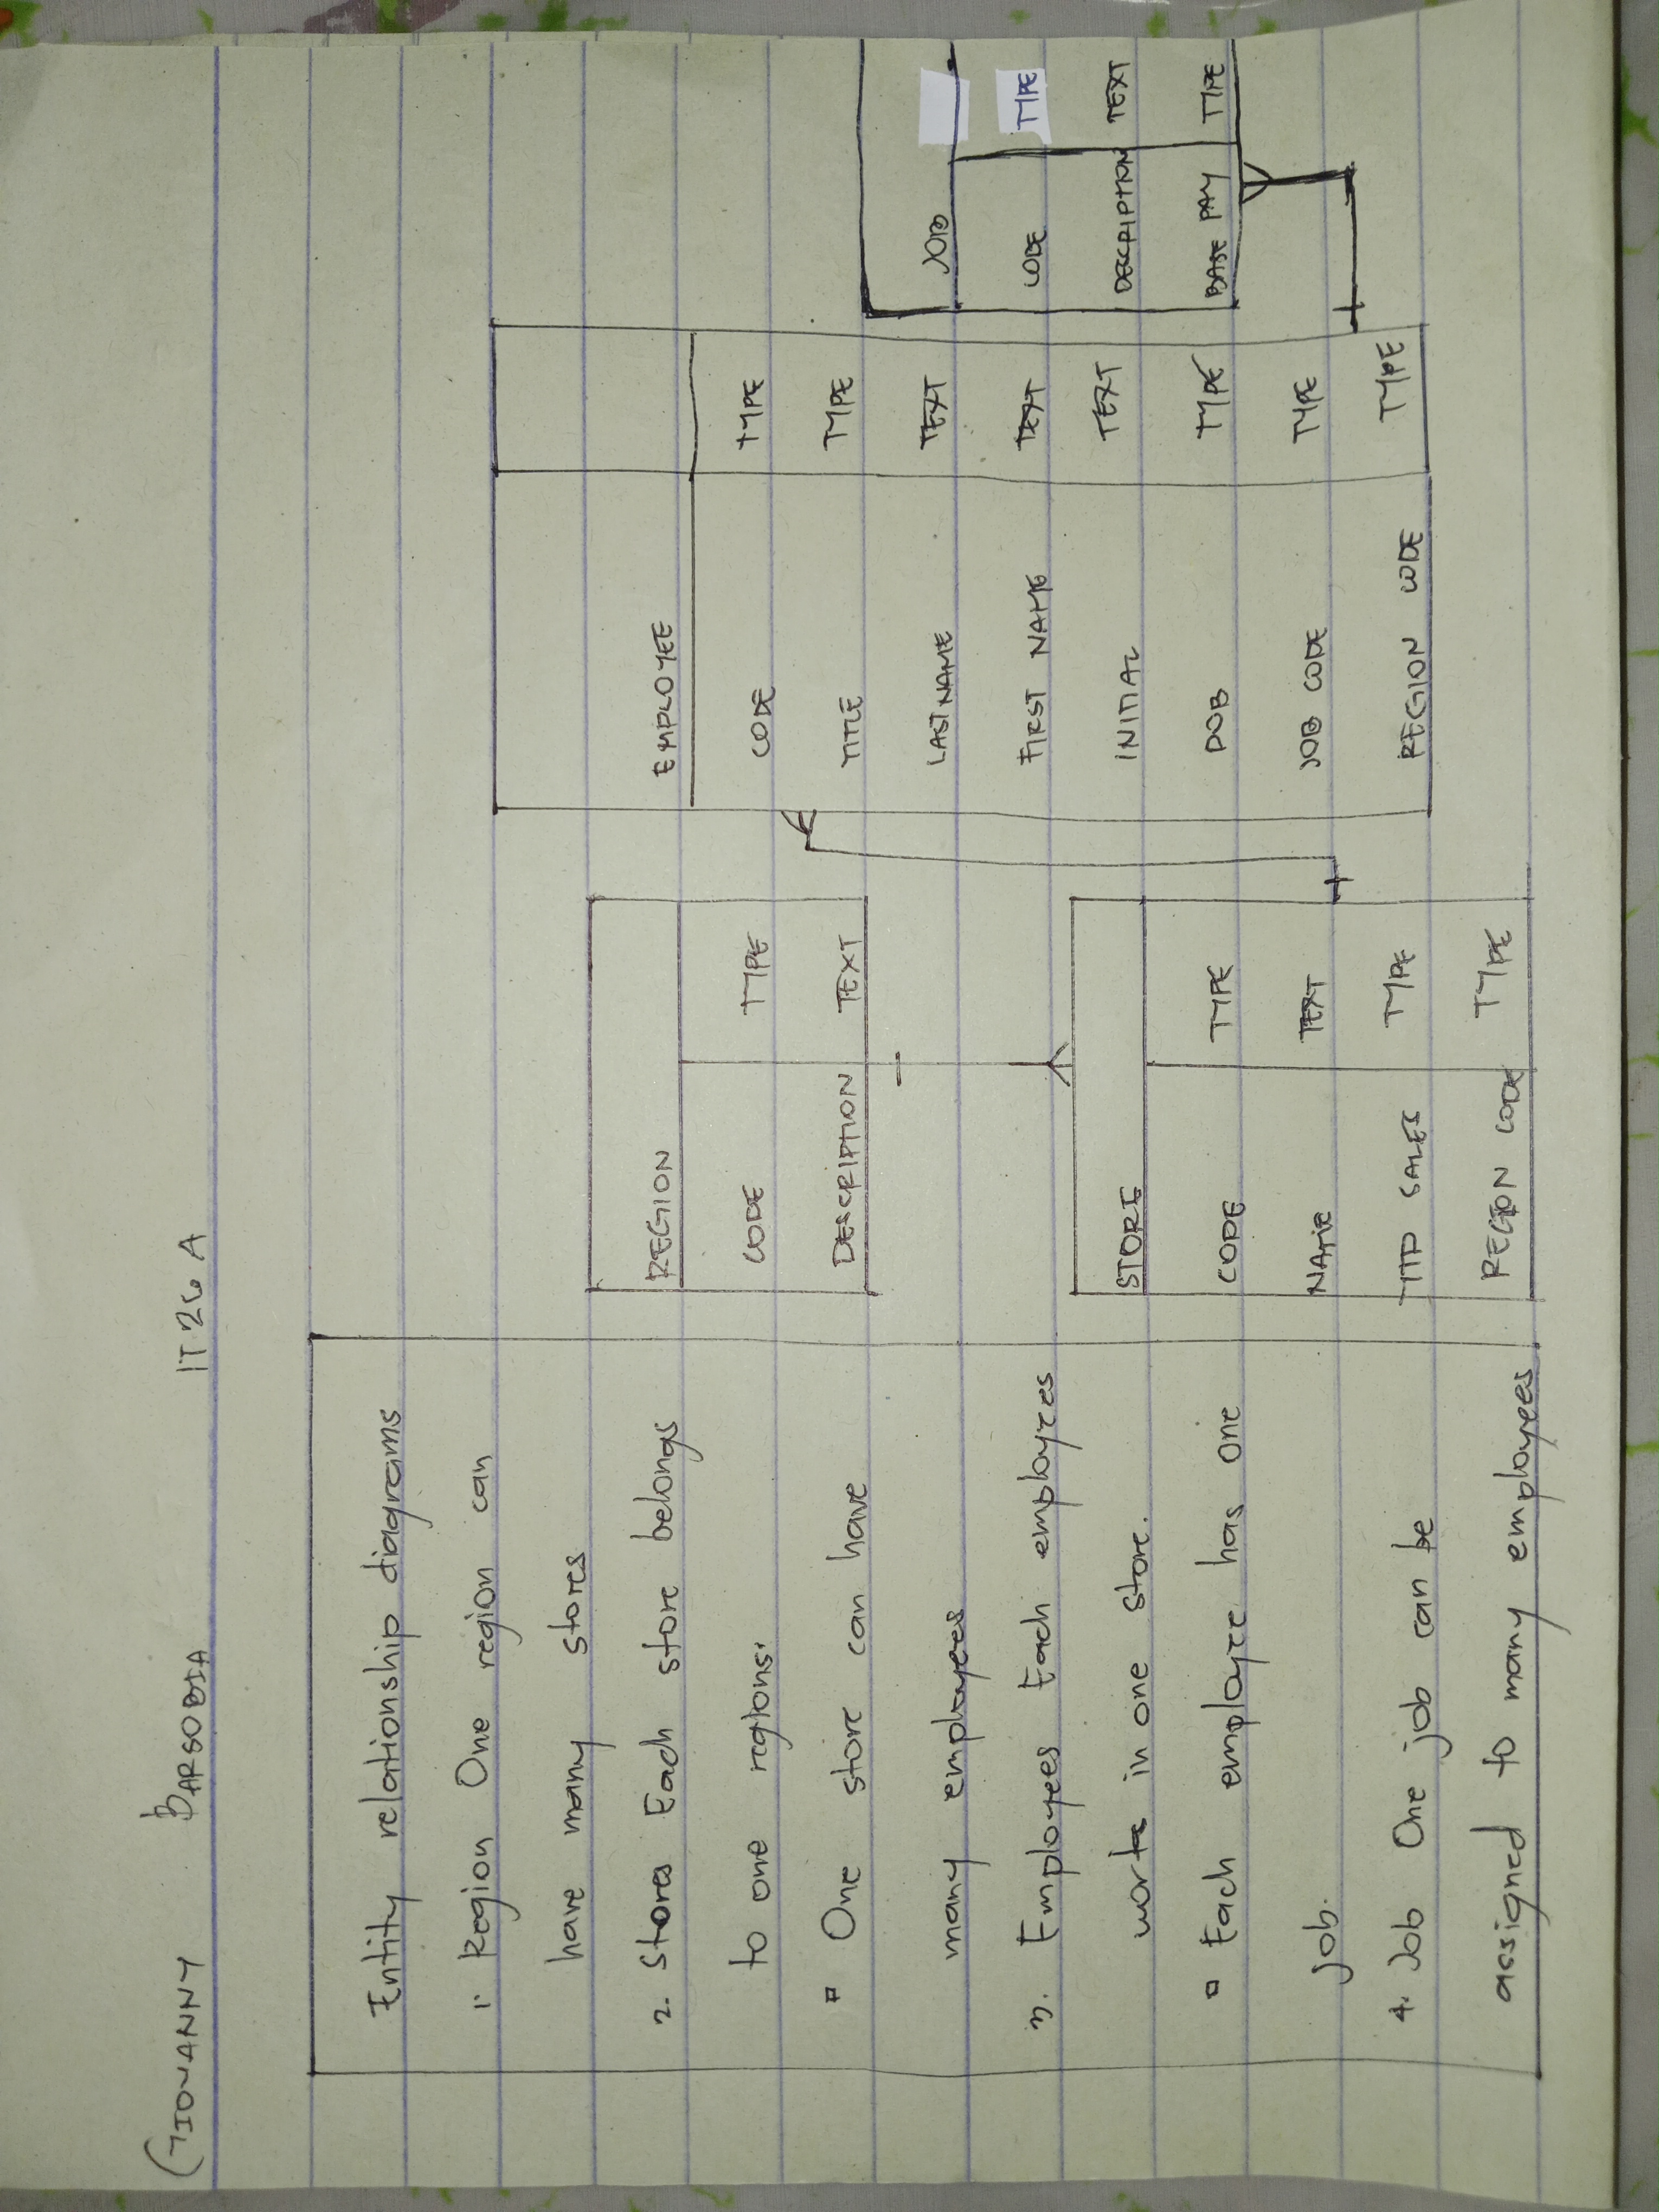 GIOVANNY BARSOBIA IT26 A
Entity relationship diagrams
1. Region One region can
have many stores
2. Stores Each store belongs
to one regions.
▫ One store can have
many employees
3. Employees Each employees
works in one store.
▫ Each employee has one
job.
4. Job One job can be
assigned to many employees
REGION
CODE TYPE
DESCRIPTION TEXT
STORE
CODE TYPE
NAME TEXT
YTD SALES TYPE
REGION CODE TYPE
EMPLOYEE
CODE TYPE
TITLE TYPE
LAST NAME TEXT
FIRST NAME TEXT
INITIAL TEXT
DOB TYPE
JOB CODE TYPE
REGION CODE TYPE
JOB
CODE TYPE
DESCRIPTION TEXT
BASE PAY TYPE